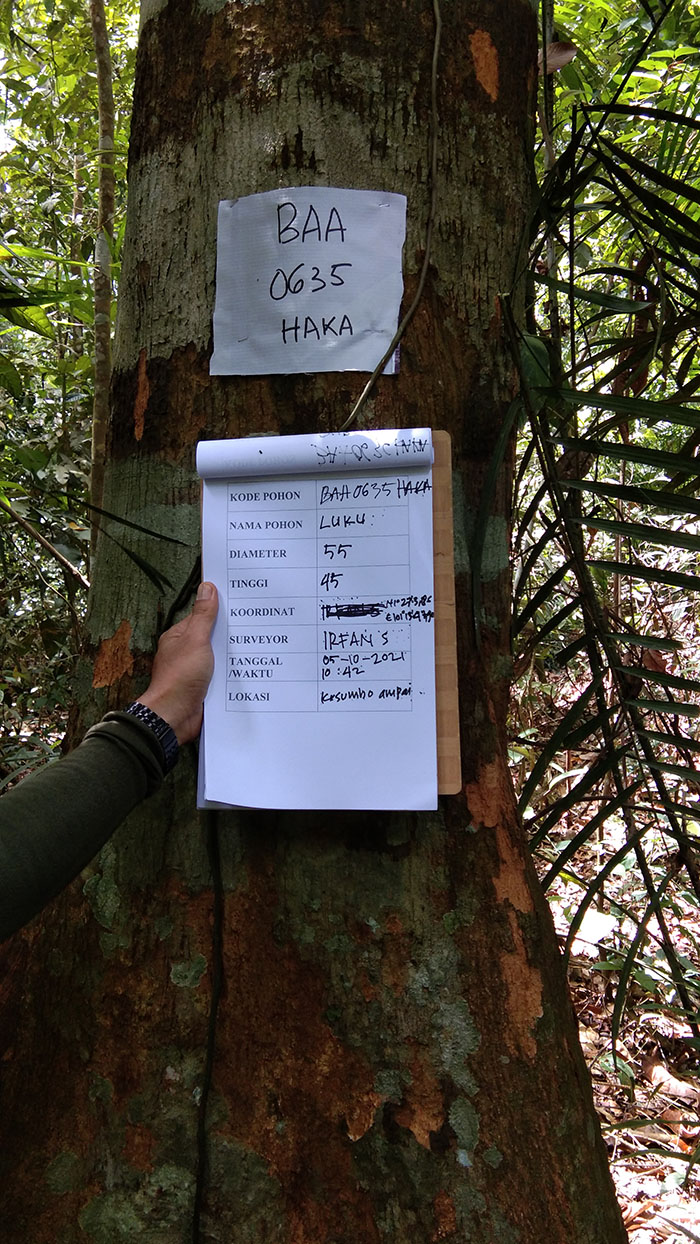 BAA
0635
HAKA
KODE POHON BAA0635 HAKA
NAMA POHON LUKU
DIAMETER 55
TINGGI 45
KOORDINAT
SURVEYOR IRFAN S
TANGGAL 05-10-2021
/WAKTU 10:42
LOKASI Kesumbo ampai